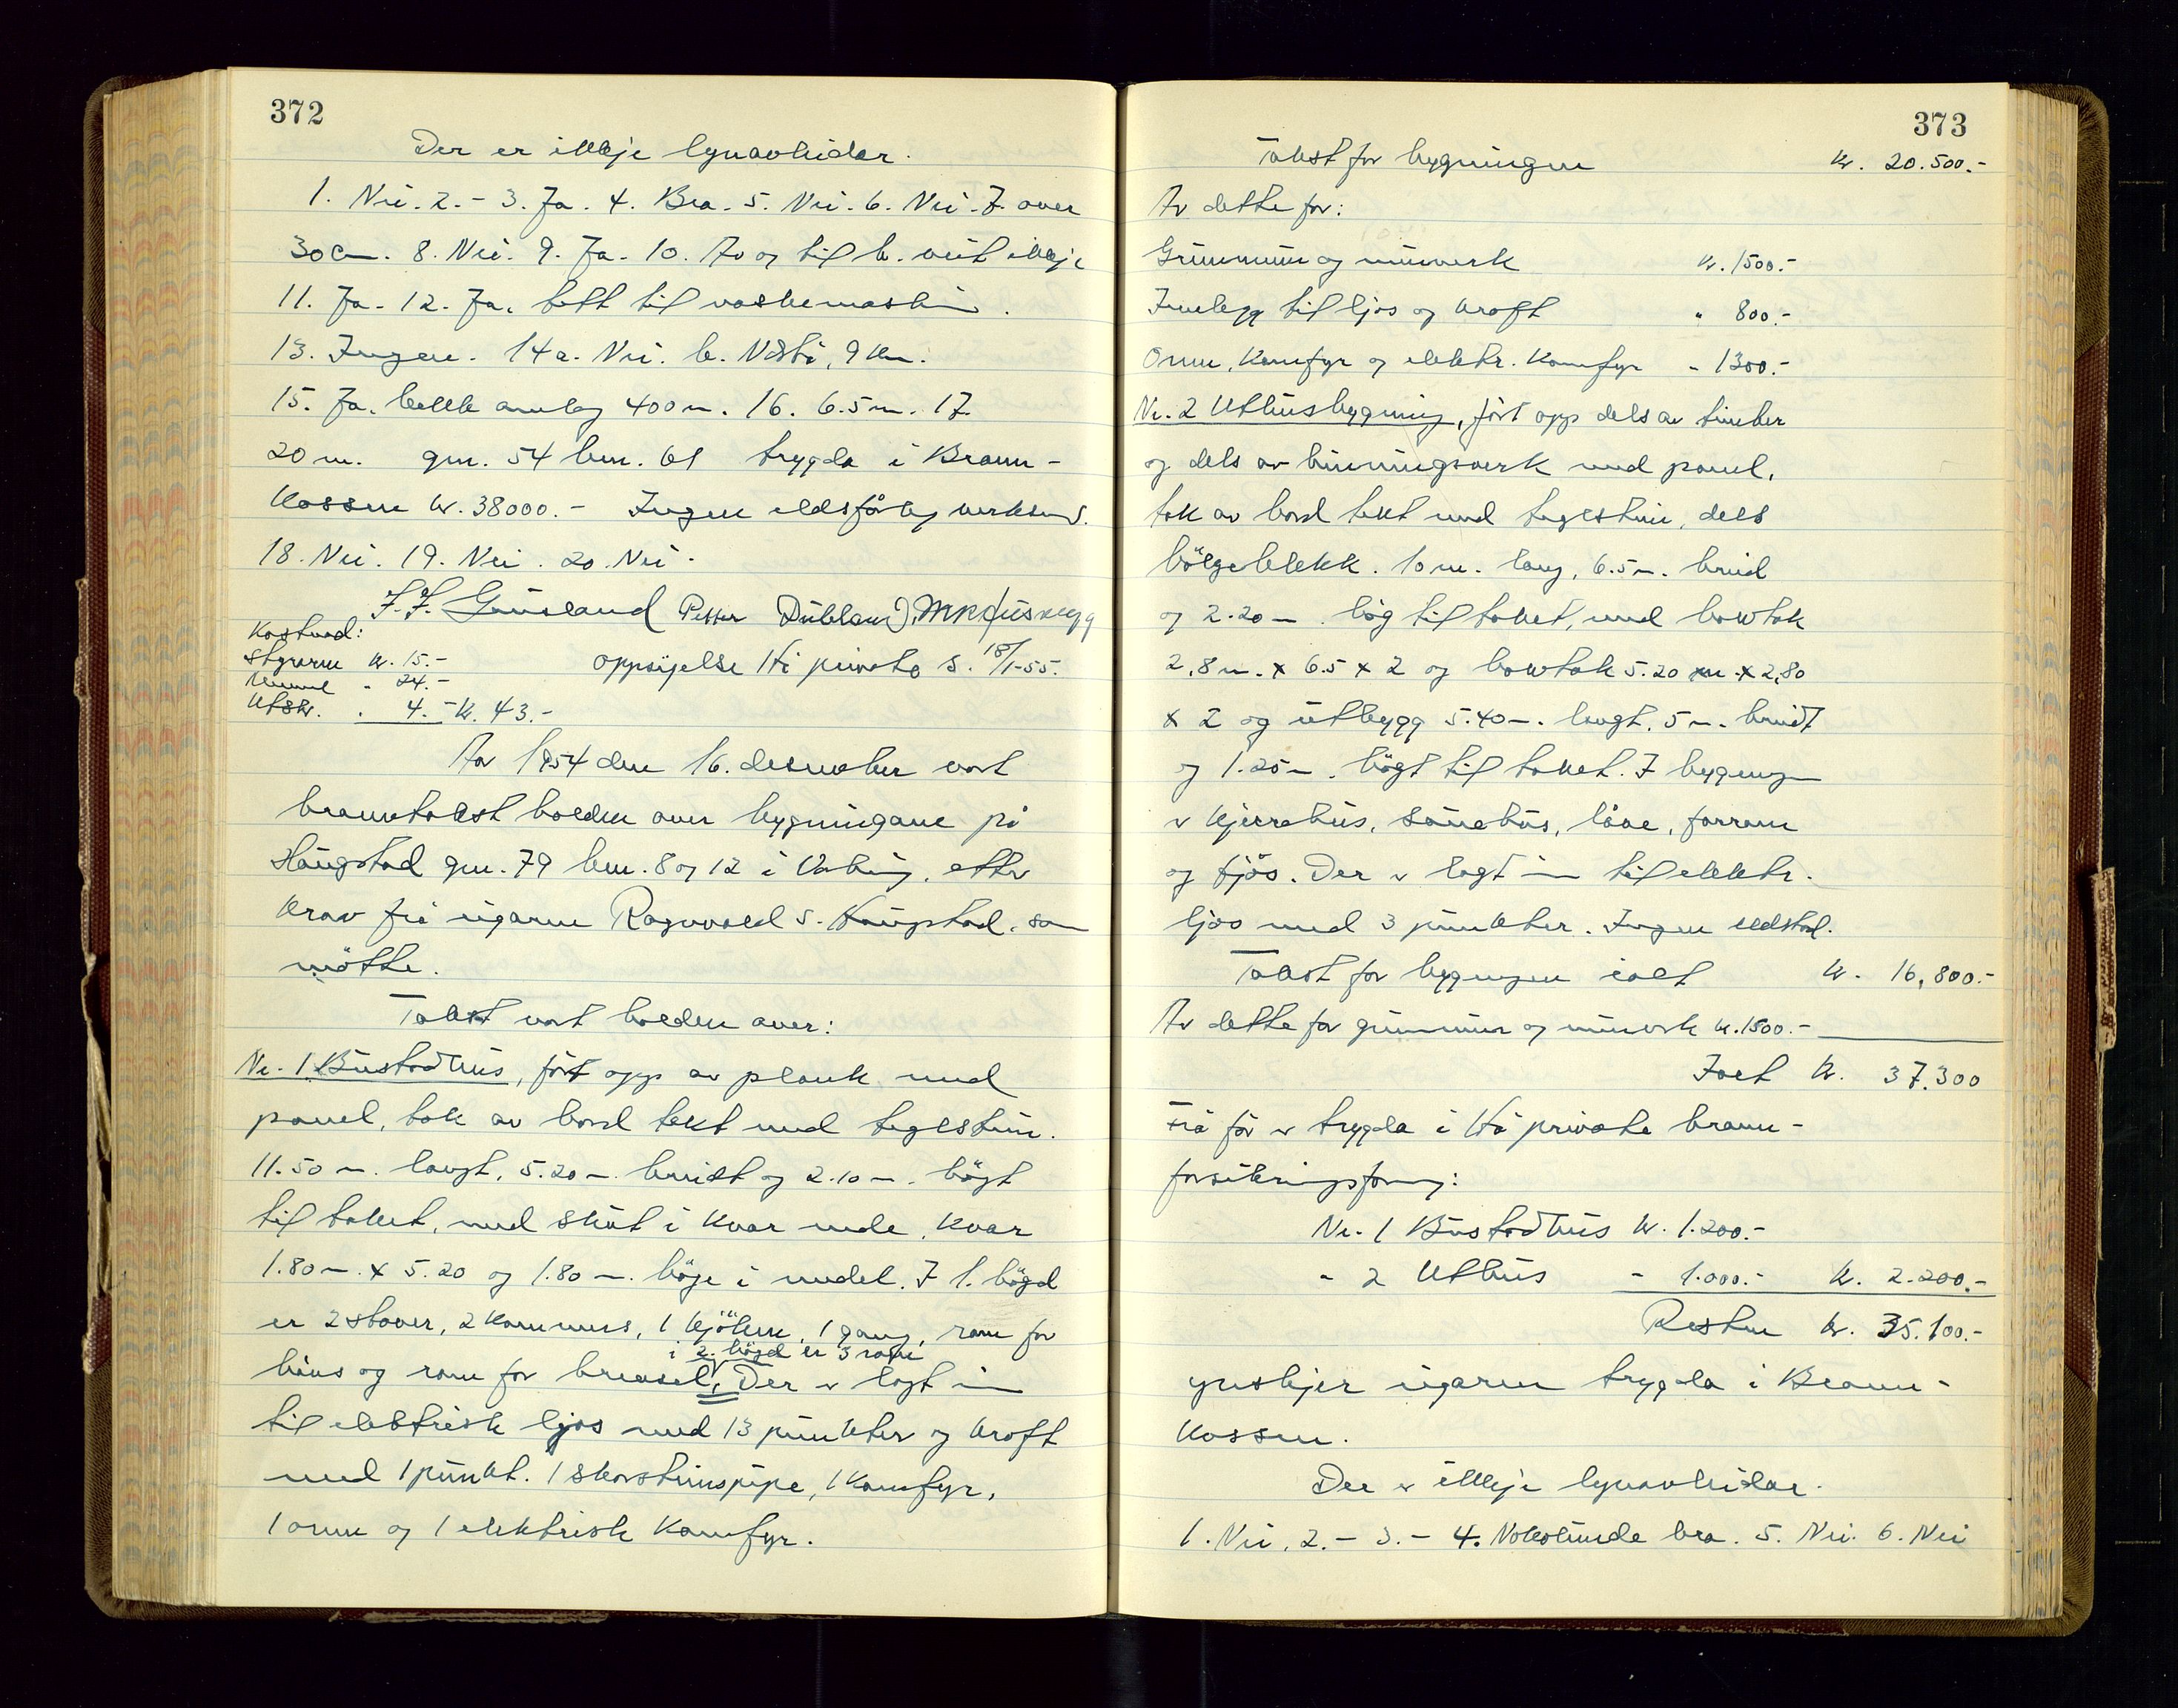 372
Der er ikkje lynavleidar.
1. Nei. 2. - 3. Ja. 4. Bra. 5. Nei. 6. Nei. 7. over
30 cm. 8. Nei. 9. Ja. 10. Av og til b. veit ikkje
11. Ja. 12. Ja, kott til vaskemaskin.
13. Ingen. 14 a. Nei. b. Næsbø, 9 km.
15. Ja. bekk om lag 400 m. 16. 6.5 m. 17
20 m. gnr. 54 bnr. 61 trygda i Brann-
kassen kr. 38000.- Ingen eldsfårleg verksemd.
18. Nei. 19. Nei. 20. Nei.
J. J. Grimsland Petter Dübland, M K
Kostnad:
Styraren kr. 15.- oppsigelse Hå private s. 18/1-55.
24.-
Utskr. " 4.- kr. 43.-
Aar 1954 den 16. desember vart
branntakst halden over bygningane på
Haugstad gnr. 79 bnr. 8 og 12 i Varhaug, etter
krav frå eigaren Ragnvald S. Haugstad, som
møtte.
Takst vart halden over:
Nr. 1 Bustadhus, ført opp av plank med
panel, tak av bord tekt med teglstein.
11.50 m. langt, 5.20 m. breidt og 2.10 m. högt
til taket, med skut i kvar ende, kvar
1.80 m. x 5.20 og 1.80 m. höge i medel. I 1. högd
er 2 stover, 2 kammers, 1 kjöken, 1 gang, rom for
i 2. högd er 3 rom
höns og rom for brensel, Der er lagt inn
til elektrisk ljos med 13 punkter og kraft
med 1 punkt. 1 skorsteinspipe, 1 komfyr,
1 omn og 1 elektrisk komfyr.
373
Takst for bygningen kr. 20.500.-
Av dette for:
Grunnmur og murverk kr. 1500.-
Innlegg til ljos og kraft " 800.-
Omn, komfyr og elektr. komfyr - 1300.-
Nr. 2 Uthusbygning, ført opp dels av timber
og dels av bindingsverk med panel,
tak av bord tekt med teglstein, dels
bölgeblekk. 10 m. lang, 6.5 m. breid
og 2.20 m. høg til taket, med halvtak
2,8 m. x 6.5 x 2 og halvtak 5.20 m. x 2,80
x 2 og utbygg 5.40 m. langt, 5 m. breidt
og 1.25 m. högt til taket. I bygningen
er kjerrehus, sauehus, låve, forrom
og fjös. Der er lagt inn til elektr.
ljos med 3 punkter. Ingen eldstad.
Takst for bygningen ialt kr. 16,800.-
Av dette for grunnmur og murverk kr. 1500.-
Ialt kr. 37.300
Frå før er trygda i Hå private brann-
forsikringsforening:
Nr. 1 Bustadhus kr. 1.200.-
" 2 Uthus - 1.000.- kr. 2.200.-
Resten kr. 35.100.-
ynskjer eigaren trygda i Brann-
kassen.
Der er ikkje lynavleidar.
1. Nei. 2. - 3. - 4. Nokolunde bra. 5. Nei. 6. Nei